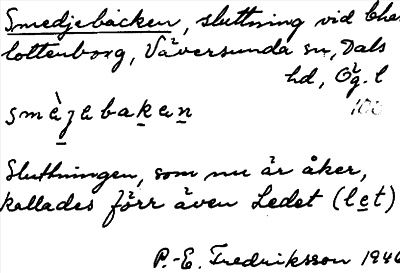 Smedjebacken, sluttning vid Char
lottenborg, Väversunda sn, Dals
hd, Ög. l
smèjebaken 100
Sluttningen, som nu är åker,
kallades förr även Ledet (let)
P.-E. Fredriksson 1946